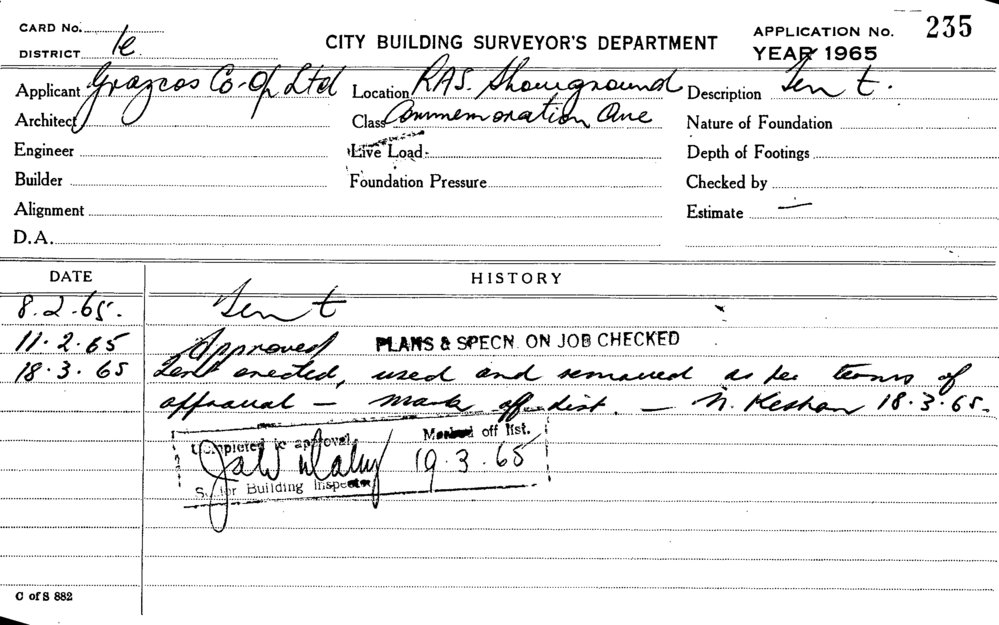 CARD No.
APPLICATION No. 235
DISTRICT 1e
CITY BUILDING SURVEYOR'S DEPARTMENT
YEAR 1965
Applicant Grazcos Co-Op Ltd
Location RAS. Showground
Description Tent.
Architect
Class Commemoration Ave
Nature of Foundation
Engineer
Live Load
Depth of Footings
Builder
Foundation Pressure
Checked by
Alignment
Estimate —
D.A.
DATE
HISTORY
8.2.65. Tent
11.2.65 Approved PLANS & SPECN. ON JOB CHECKED
18.3.65 Tent erected, used and removed as per terms of
approval — mark off list. — N. Keshan 18.3.65.
Completed to approval. Marked off list.
19.3.65
Senior Building Inspector
C of S 882